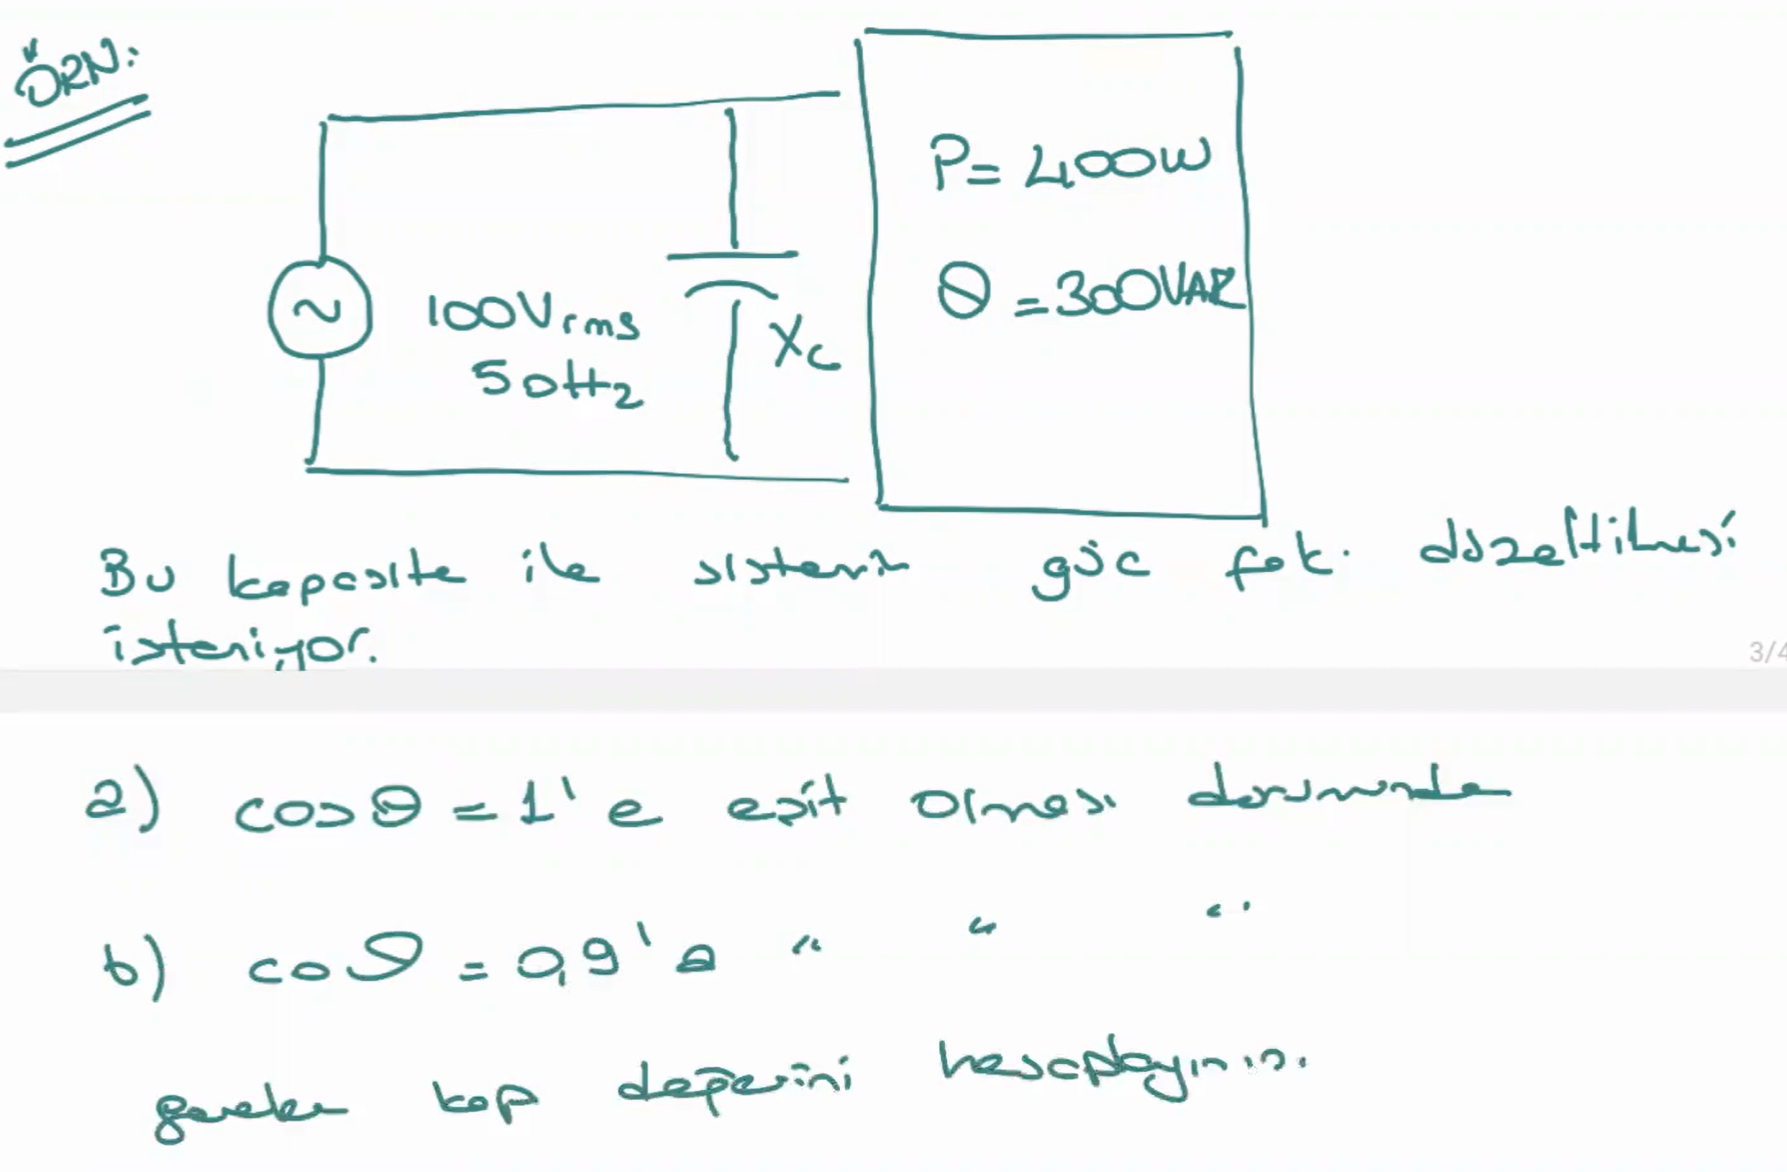 ÖRN:
P= 400W
Q =300VAR
100Vrms
50Hz
Xc
Bu kapasite ile sistemin güc fak. düzeltilmesi
isteniyor.
3/4
a) cosθ = 1'e eşit olması durumunda
b) cosθ = 0,9'a " " "
gereken kap değerini hesaplayınız.